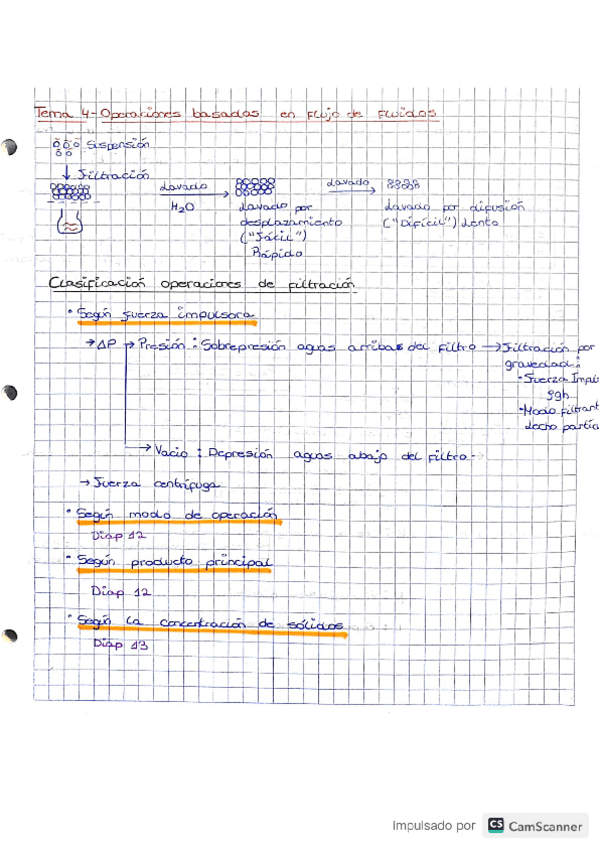 Tema 4- Operaciones basadas en Flujo de Fluidos
Suspensión
↓ Filtración
lavado
H₂O
lavado por
desplazamiento
("Fácil")
Rápido
lavado
lavado por difusión
("Difícil") Lento
Clasificación operaciones de filtración
• Según fuerza impulsora
→ ΔP → Presión : Sobrepresión aguas arribas del filtro → Filtración por
gravedad :
- Fuerza Impul
ρgh
- Modo filtrant
lecho partíc
→ Vacío : Depresión aguas abajo del filtro.
→ Fuerza centrífuga
• Según modo de operación
Diap 12
• Según producto principal
Diap 12
• Según la concentración de sólidos
Diap 13
Impulsado por CS CamScanner